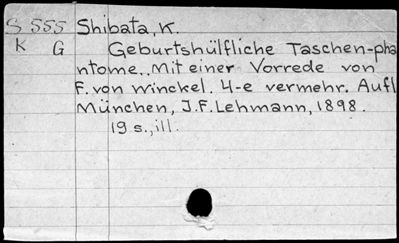 S 555 Shibata, K.
K G Geburtshülfliche Taschen-pha
ntome.. Mit einer Vorrede von
F. von Winckel. 4-e vermehr. Aufl
München, J.F. Lehmann, 1898.
19 s., ill.